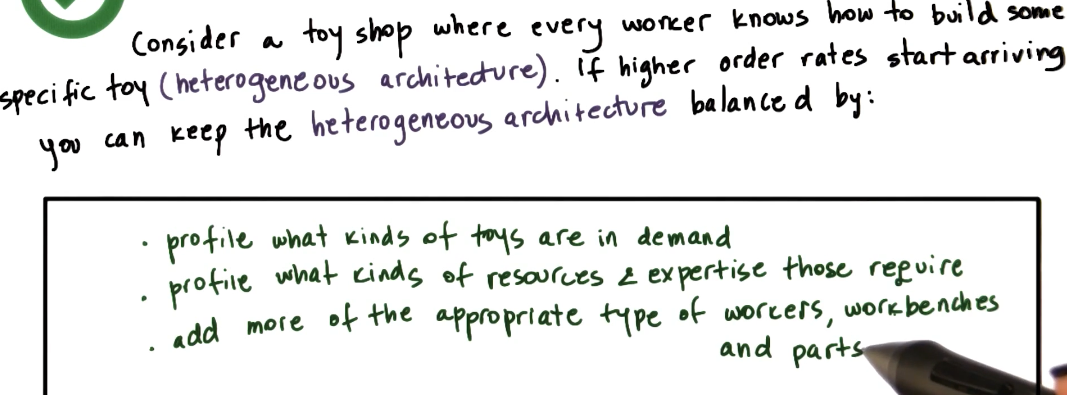 Consider a toy shop where every worker knows how to build some
specific toy (heterogeneous architecture). If higher order rates start arriving
you can keep the heterogeneous architecture balanced by:
· profile what kinds of toys are in demand
· profile what kinds of resources & expertise those require
· add more of the appropriate type of workers, workbenches
and parts